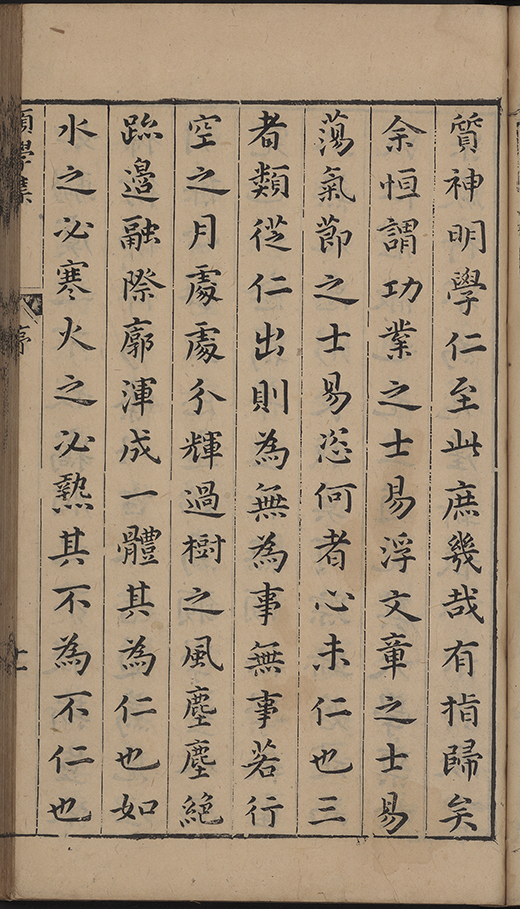 質神明學仁至此庶幾哉有指歸矣
余恒謂功業之士易浮文章之士易
蕩氣節之士易恣何者心未仁也三
者類從仁出則為無為事無事若行
空之月處處分輝過樹之風塵塵絕
跡邉融際廓渾成一體其為仁也如
水之必寒火之必熱其不為不仁也
序